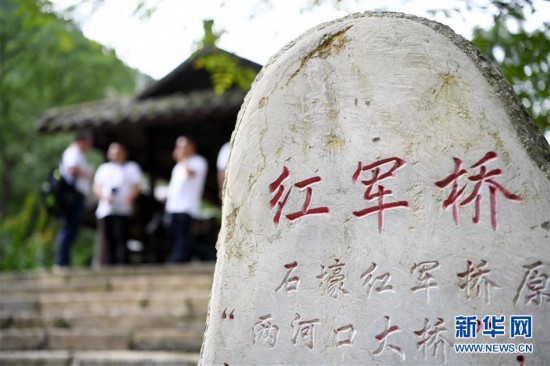 红军桥
石壕红军桥原
“两河口大桥
新华网
WWW.NEWS.CN